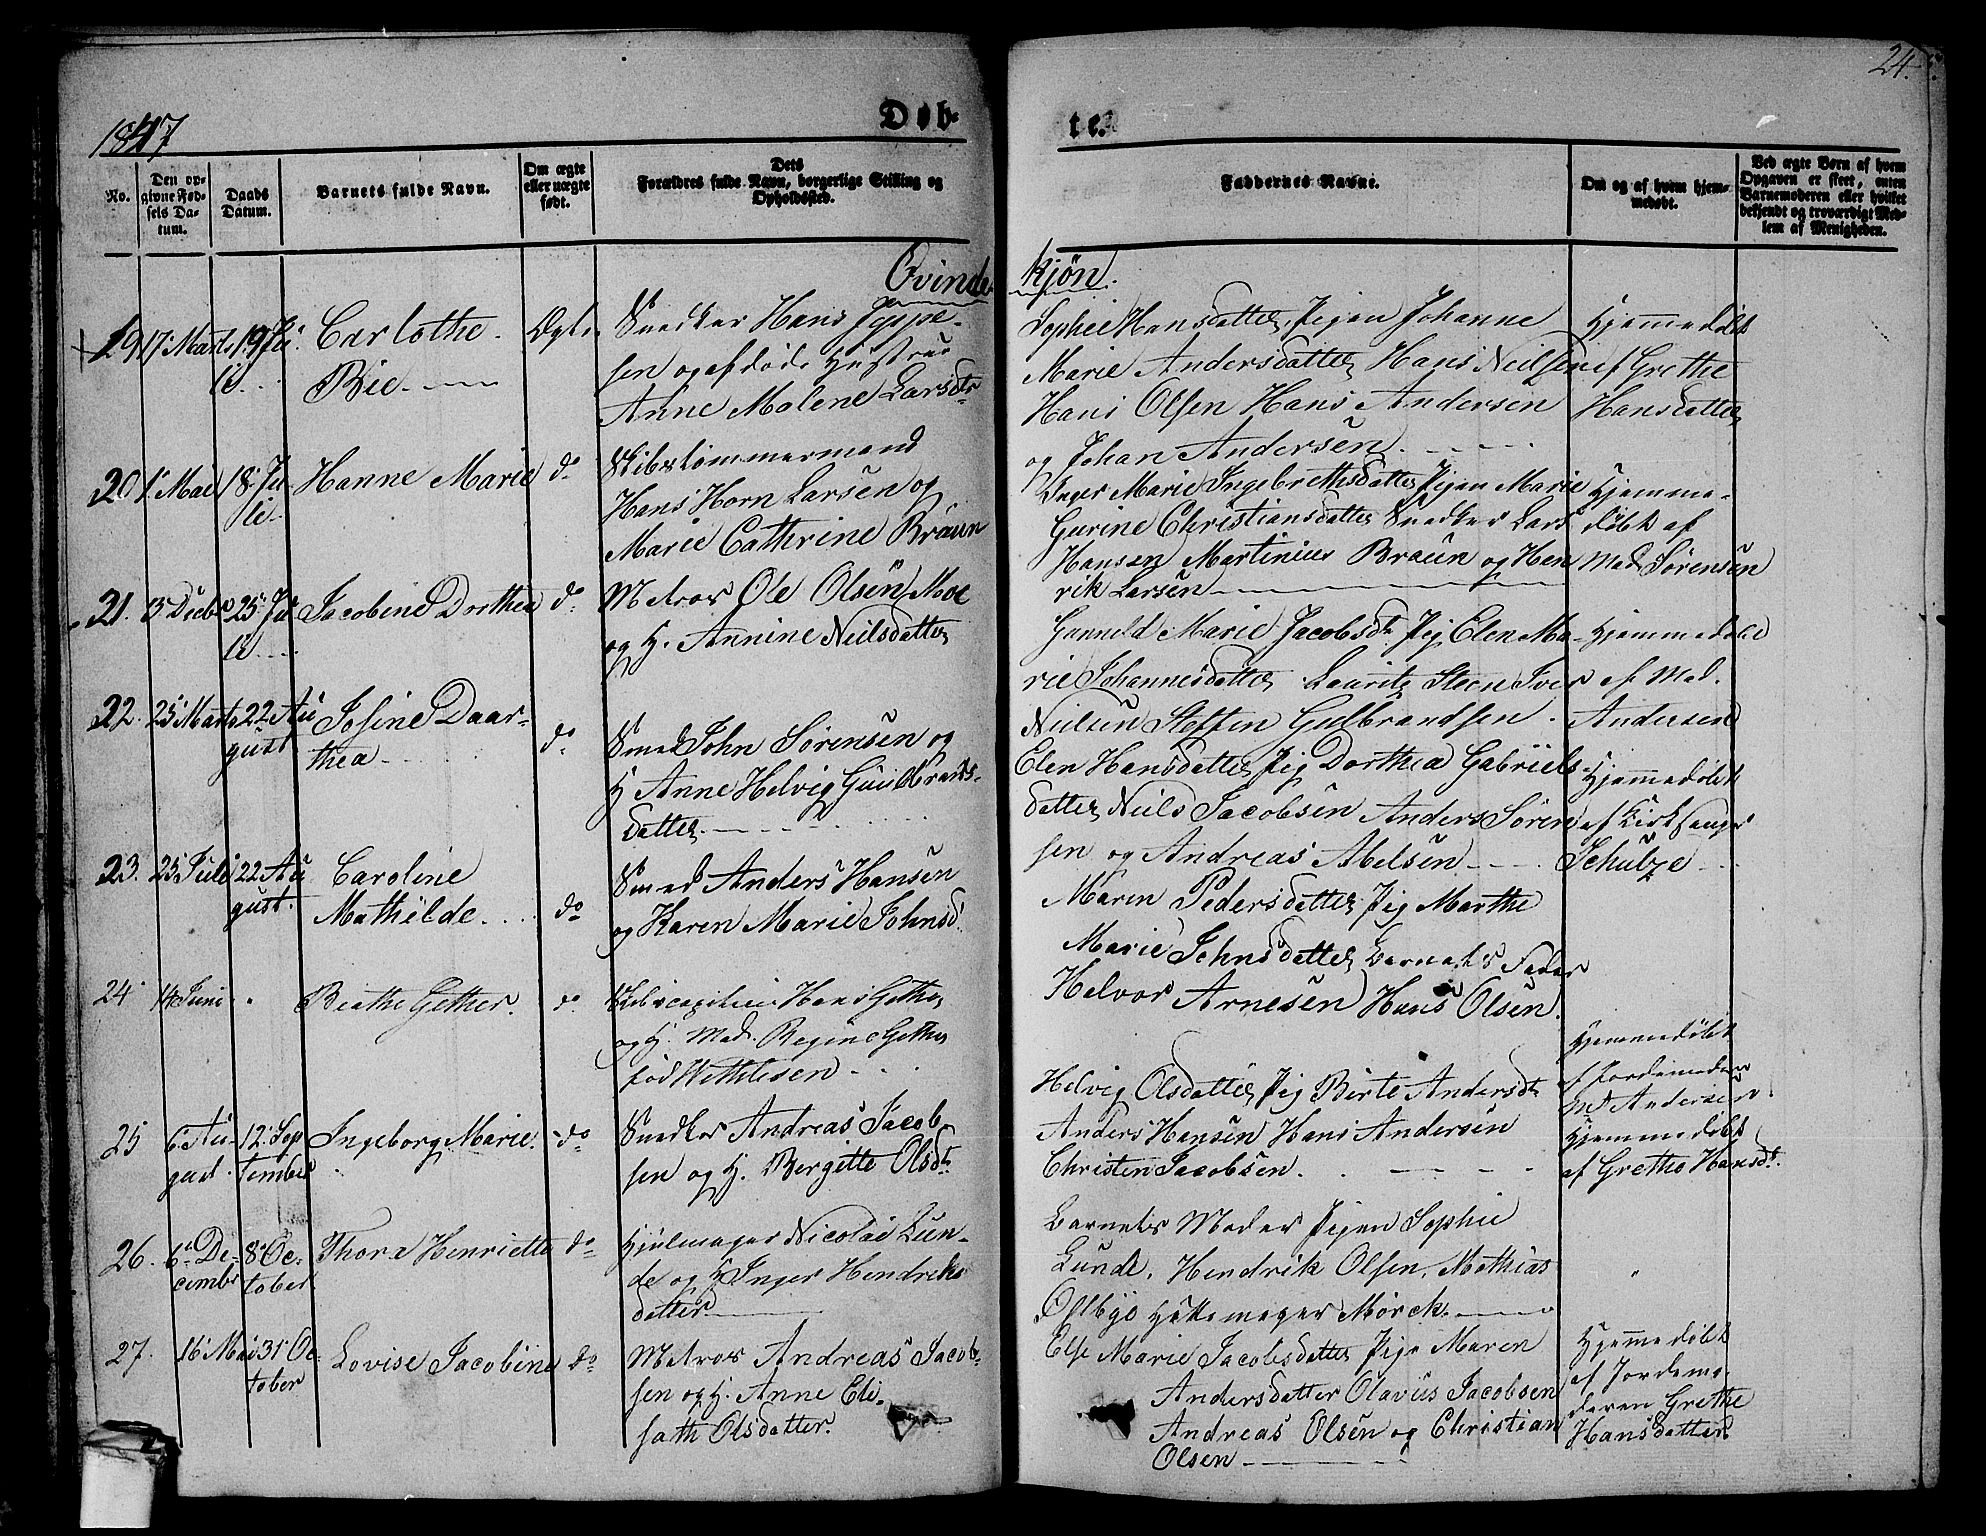 24.
1847
Døb-
te.
No.
Den op-
givne Fød-
sels Da-
tum.
Daabs
Datum.
Barnets fulde Navn.
Om ægte
eller uægte
født.
Dets
Forældres fulde Navn, borgerlige Stilling og
Opholdssted.
Faddernes Navne.
Om og af hvem hjem-
medøbt.
Ved ægte Børn af hvem
Opgaven er skeet, enten
Barnemoderen eller hvilket
bekjendt og troværdigt Med-
lem af Menigheden.
Qvinde
kjøn.
19 17 Marts 19 Ju
lie
Carlothe
Bie
Ægte
Snedker Hans Jeppe-
sen og afdøde Hustrue
Anne Malene Larsdtr
Sophie Hansdatter, Pigen Johanne
Marie Andersdatter Hans Neilsen
Hans Olsen Hans Andersen
og Johan Andersen
Hjemmedøbt
af Grethe
Hansdatter
20 1 Mai 18 Ju
lie
Hanne Marie do
Skibstømmermand
Hans Horn Larsen og
Marie Cathrine Braun
Inger Marie Ingebrethsdatter Pigen Marie
Gurine Christiansdatter Snedker Lars
Hansen Martinius Braun og Hen
rik Larsen
Hjemme-
døbt af
Mad. Sørensen
21. 13 Decbr 25 Ju
lie
Jacobine Dorthea do
Matros Ole Olsen Moe
og H. Annine Neilsdatter
Gunneld Marie Jacobsdtr Pig Elen Ma-
rie Johannesdatter Lauritz Steen Iver
Nielsen Steffen Gulbrandsen
Hjemmedøbt
af Mad.
Andersen
22. 25 Marts 22 Au
gust
Josine Daar-
thea
do
Smed John Sørensen og
H Anne Helvig Guldbrands-
datter
Elen Hansdatter Pig Dorthea Gabriels-
datter Neils Jacobsen Anders Søren
sen og Andreas Abelsen
Hjemmedøbt
af Kirksanger
Schulze
23. 25 Juli 22 Au
gust.
Caroline
Mathilde
do
Smed Anders Hansen
og Karen Marie Johnsd.
Maren Pedersdatter Pig Marthe
Marie Johnsdatter Barnets Fader
Helvor Arnesen Hans Olsen.
24 14 Juni "
Beathe Gether. do
Skibscapitain Hans Gether
og H. Mad. Regine Gether
fød Wethlesen
Hjemmedøbt
af Jordemoder
Md Andersen.
25 6 Au-
gust. 12 Sep
tember
Ingeborg Marie. do
Snedker Andreas Jacob
sen og H. Bergitte Olsdtr
Helvig Olsdatter Pig Birte Andersdtr
Anders Hansen Hans Andersen
Christen Jacobsen.
Hjemmedøbt
af Grethe Hansdtr.
26. 6 De-
cember 8 Oc-
tober
Thora Henriette do
Hjulmager Nicolai Lun-
de og H Inger Hendriks
datter
Barnets Moder Pigen Sophie
Lunde, Hendrik Olsen, Mathias
Oselbye Hattemager Mørck.
"
27. 16 Mai 31 Oc-
tober
Lovise Jacobine do
Matros Andreas Jacob-
sen og H. Anne Eli-
sath Olsdatter.
Else Marie Jacobsdatter Pige Maren
Andersdatter Olavus Jacobsen
Andreas Olsen og Christian
Olsen
Hjemmedøbt
af Jordemo-
deren Grethe
Hansdatter